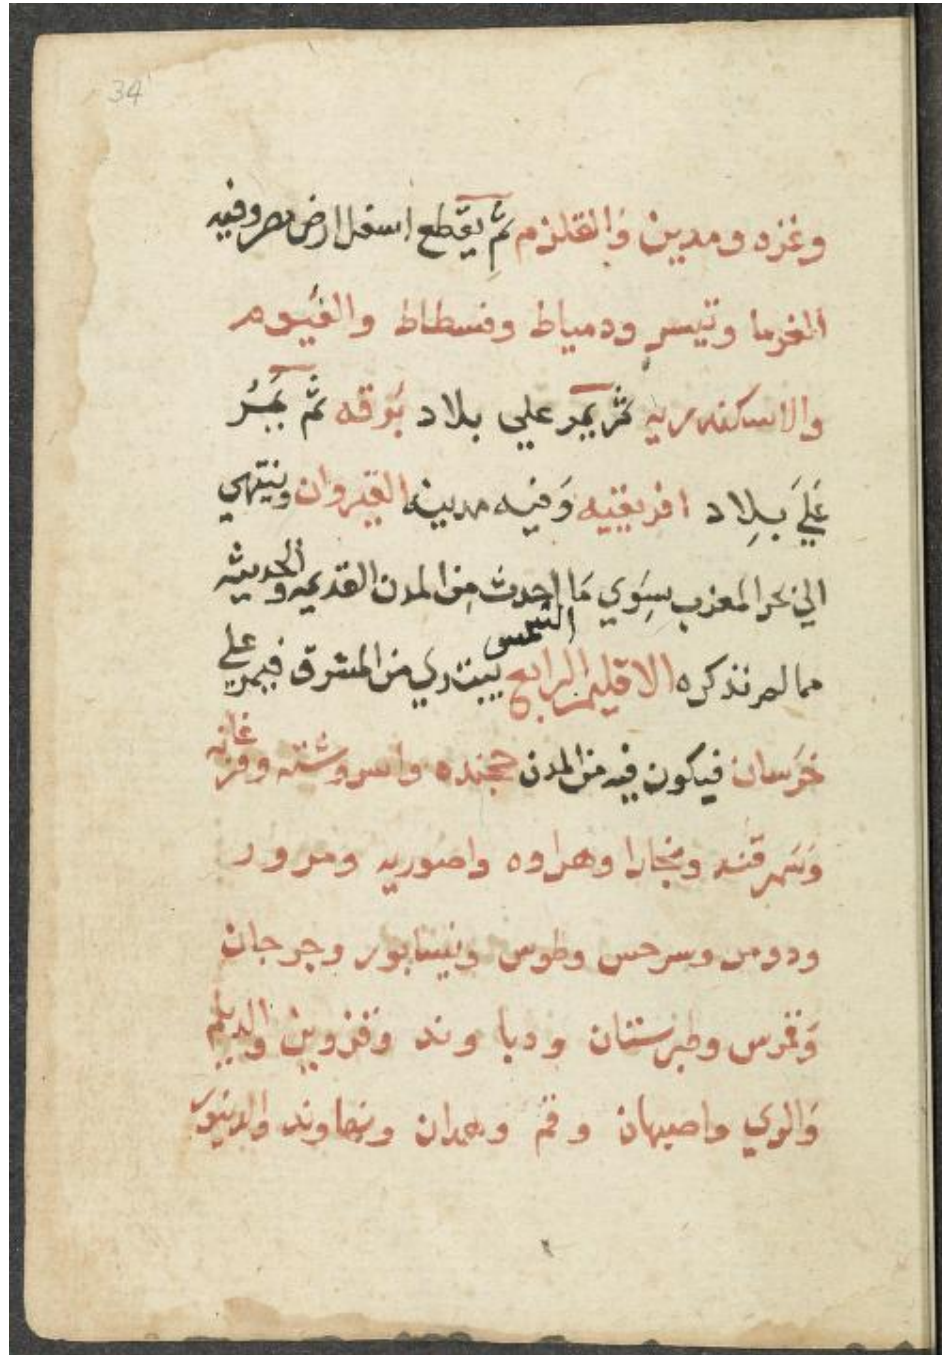 34
وغزه ومدين والقلزم ثم يقطع اسفل ارض مصر وفيه
الفرما وتيس ودمياط وفسطاط والفيوم
والاسكندريه ثم يمر علي بلاد برقه ثم يمر
علي بلاد افريقيه وفيه مدينه القيروان وينتهي
الي بحر المغرب سوي ما احدث من المدن القديمه والحديثه
مما لم نذكره الاقليم الرابع الشمس يبتدي من المشرق فيمر علي
خرسان فيكون فيه من المدن خجنده واسروشنه وفرغانه
وسمرقند وبخارا وهراوه واصوريه ومرورد
ودومر وسرخس وطوس ونيسابور وجرجان
وقمرس وطبرستان ودبا وند وقزوين والديلم
والري واصبهان وقم وهمدان ونهاوند والدينور